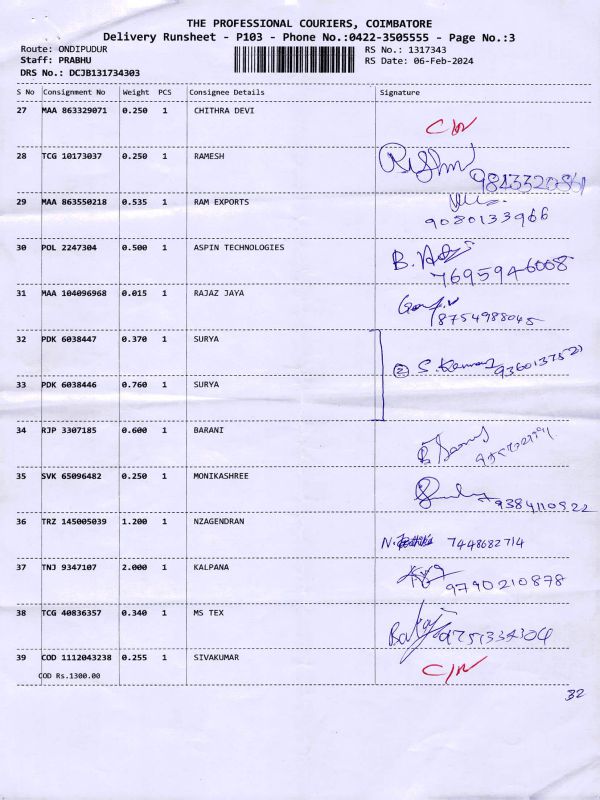 THE PROFESSIONAL COURIERS, COIMBATORE
Delivery Runsheet - P103 - Phone No.:0422-3505555 - Page No.:3
Route: ONDIPUDUR RS No.: 1317343
Staff: PRABHU RS Date: 06-Feb-2024
DRS No.: DCJB131734303
S No Consignment No Weight PCS Consignee Details Signature
27 MAA 863329071 0.250 1 CHITHRA DEVI
28 TCG 10173037 0.250 1 RAMESH
9843320861
29 MAA 863550218 0.535 1 RAM EXPORTS
9080133966
30 POL 2247304 0.500 1 ASPIN TECHNOLOGIES
7695946008
31 MAA 104096968 0.015 1 RAJAZ JAYA
8754988045
32 PDK 6038447 0.370 1 SURYA
② S.
33 PDK 6038446 0.760 1 SURYA
34 RJP 3307185 0.600 1 BARANI
35 SVK 65096482 0.250 1 MONIKASHREE
9384110522
36 TRZ 145005039 1.200 1 NZAGENDRAN
N. 7448682714
37 TNJ 9347107 2.000 1 KALPANA
9790210878
38 TCG 40836357 0.340 1 MS TEX
39 COD 1112043238 0.255 1 SIVAKUMAR
COD Rs.1300.00
32